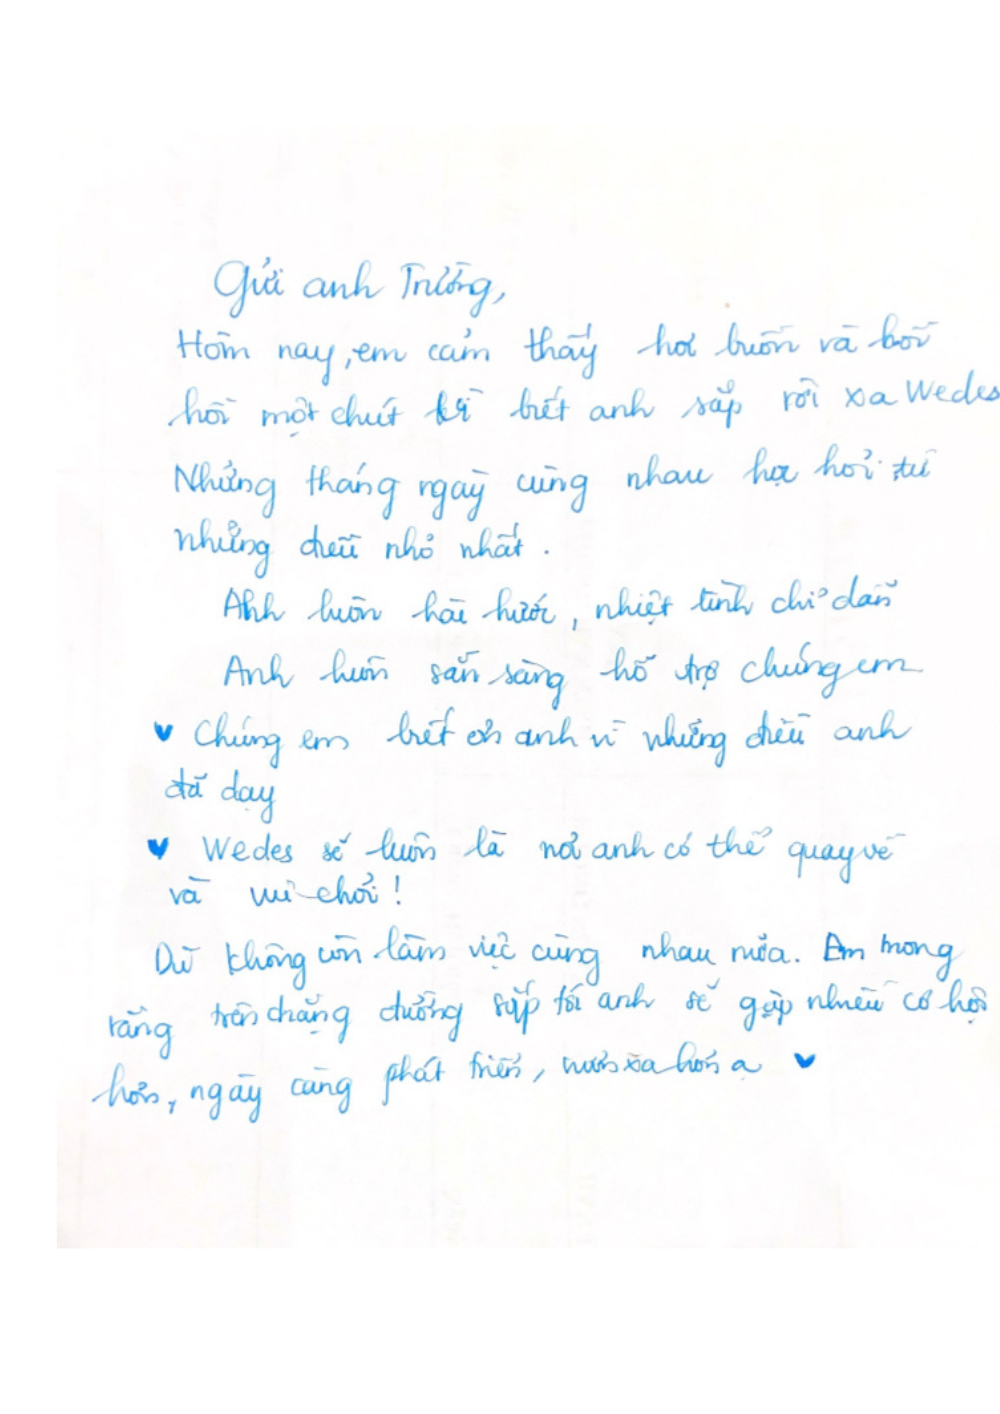 Gửi anh Trường,
Hôm nay, em cảm thấy hơi buồn và bồi
hồi một chút khi biết anh sắp rời xa Wedes
Những tháng ngày cùng nhau học hỏi từ
những điều nhỏ nhất.
Anh luôn hài hước, nhiệt tình chỉ dẫn
Anh luôn sẵn sàng hỗ trợ chúng em
♥ Chúng em biết ơn anh vì những điều anh
đã dạy
♥ Wedes sẽ luôn là nơi anh có thể quay về
và vui chơi!
Dù không còn làm việc cùng nhau nữa. Em mong
rằng trên chặng đường sắp tới anh sẽ gặp nhiều cơ hội
hơn, ngày càng phát triển, vươn xa hơn ạ ♥